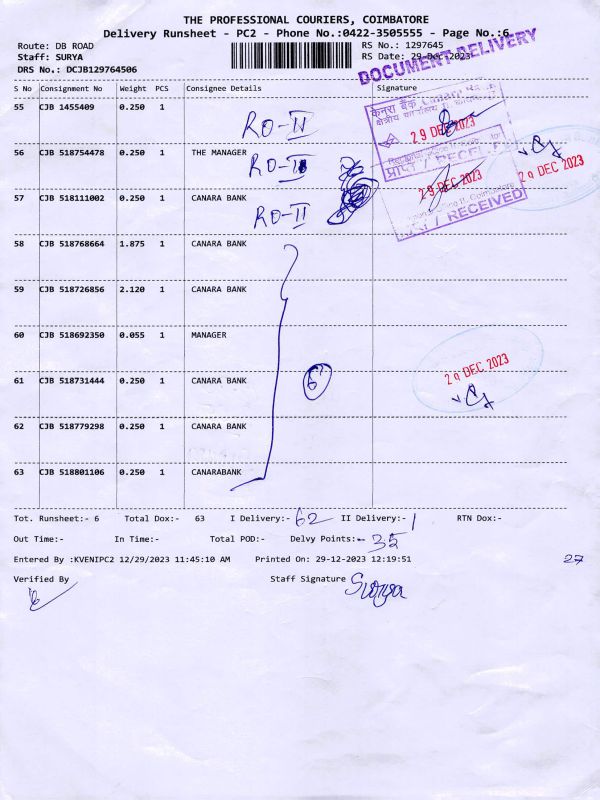 THE PROFESSIONAL COURIERS, COIMBATORE
Delivery Runsheet - PC2 - Phone No.:0422-3505555 - Page No.:6
Route: DB ROAD RS No.: 1297645
Staff: SURYA RS Date: 29-Dec-2023
DRS No.: DCJB129764506
DOCUMENT DELIVERY
S No Consignment No Weight PCS Consignee Details Signature
55 CJB 1455409 0.250 1
RO-II
केनरा बैंक Canara Bank
29 DEC 2023
56 CJB 518754478 0.250 1 THE MANAGER
RO-II
29 DEC 2023
29 DEC 2023
57 CJB 518111002 0.250 1 CANARA BANK
RO-II
RECEIVED
58 CJB 518768664 1.875 1 CANARA BANK
59 CJB 518726856 2.120 1 CANARA BANK
60 CJB 518692350 0.055 1 MANAGER
29 DEC 2023
61 CJB 518731444 0.250 1 CANARA BANK
6
62 CJB 518779298 0.250 1 CANARA BANK
63 CJB 518801106 0.250 1 CANARABANK
Tot. Runsheet:- 6 Total Dox:- 63 I Delivery:- 62 II Delivery:- 1 RTN Dox:-
Out Time:- In Time:- Total POD:- Delvy Points:- 35
Entered By :KVENIPC2 12/29/2023 11:45:10 AM Printed On: 29-12-2023 12:19:51 27
Verified By Staff Signature Surya